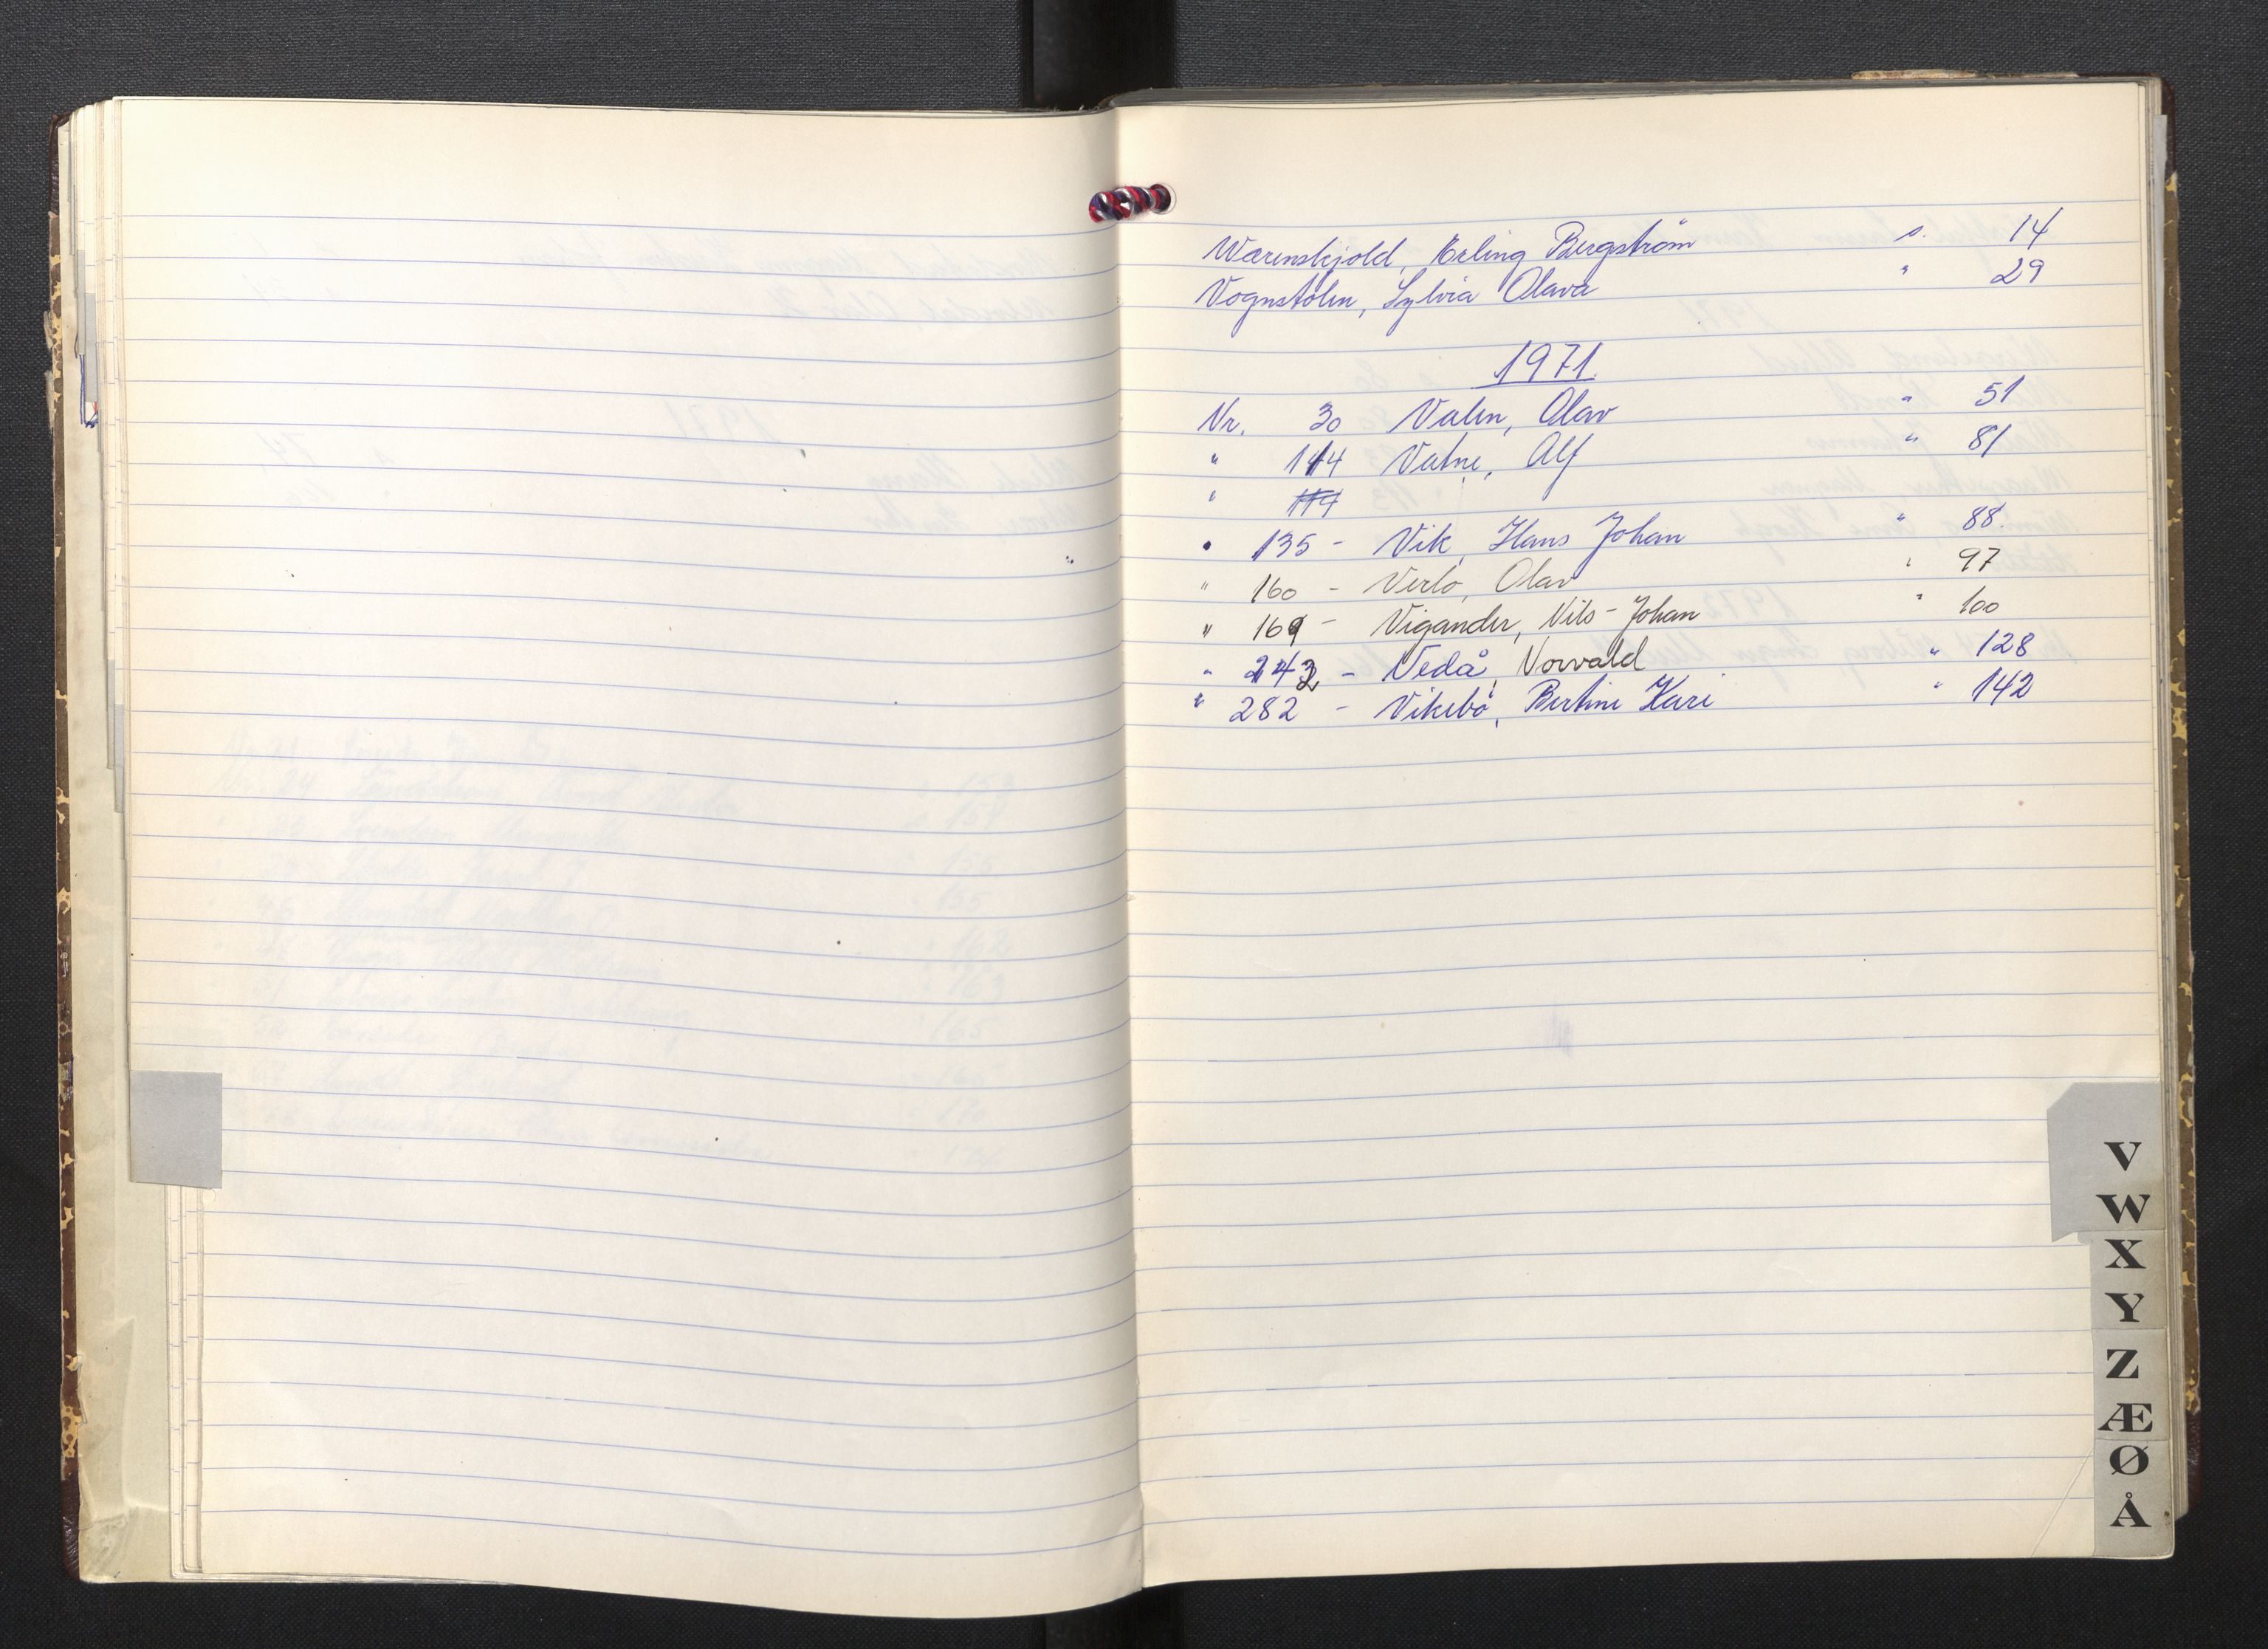 Warenskjold, Erling Bergström s. 14
Vognstølen, Sylvia Olava " 29
1971
Nr. 30 Valen, Olav " 51
" 114 Vatne, Alf " 81
" 114
" 135 - Vik, Hans Johan " 88.
" 160 - Verlo, Olav " 97
" 169 - Vigander, Nils-Johan " 100
" 242 - Vedå, Norvald " 128
" 282 - Vikebø, Bertine Kari " 142
V
W
X
Y
Z
Æ
Ø
Å